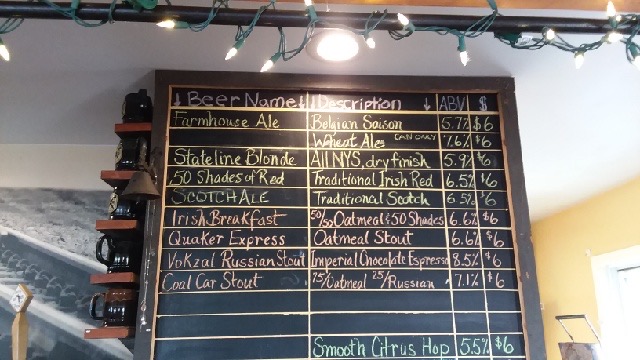 ↓ Beer Name ↓ Description ↓ ABV $
Farmhouse Ale Belgian Saison 5.7% $6
Wheat Ales 7.6% $6
Stateline Blonde All NYS, dry finish 5.9% $6
50 Shades of Red Traditional Irish Red 6.5% $6
SCOTCH ALE Traditional Scotch 6.5% $6
Irish Breakfast 50/50 Oatmeal & 50 Shades 6.6% $6
Quaker Express Oatmeal Stout 6.6% $6
Vokzal Russian Stout Imperial Chocolate Espresso 8.5% $6
Coal Car Stout 75/Oatmeal 25/Russian 7.1% $6
Smooth Citrus Hop 5.5% $6